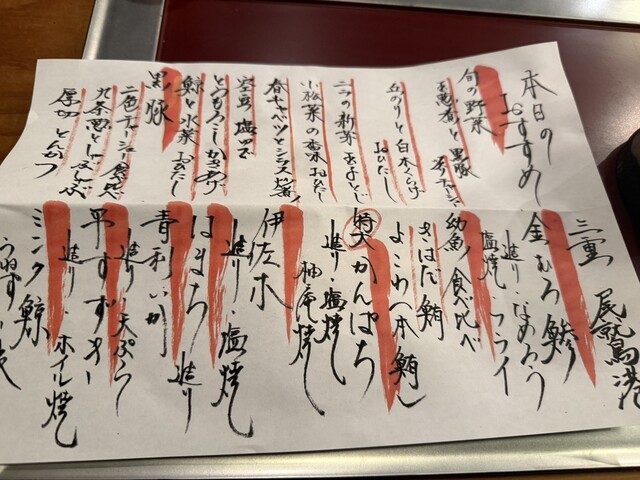 本日のおすすめ
旬の野菜
玉葱と黒豚
五のりと白木くらげ
おひたし
こごみの新芽玉子とじ
小松菜の煮おひたし
春キャベツとシラス
空豆塩ゆで
とうもろこしかきあげ
鯨と水菜おひたし
黒豚
二色チャーシュー食べ比べ
九条葱と
厚切とんかつ
三重尾鷲港
金むろ鯵
造り・なめろう
塩焼・フライ
幼魚食べ比べ
きはだ鮪
よこわ(本鮪)
特大かんぱち
造り・塩焼し
柚庵焼し
伊佐木
造り・塩焼し
はまち造り
青利いか
造り・天ぷら
平すずき
造り・ホイル焼し
ミンク鯨